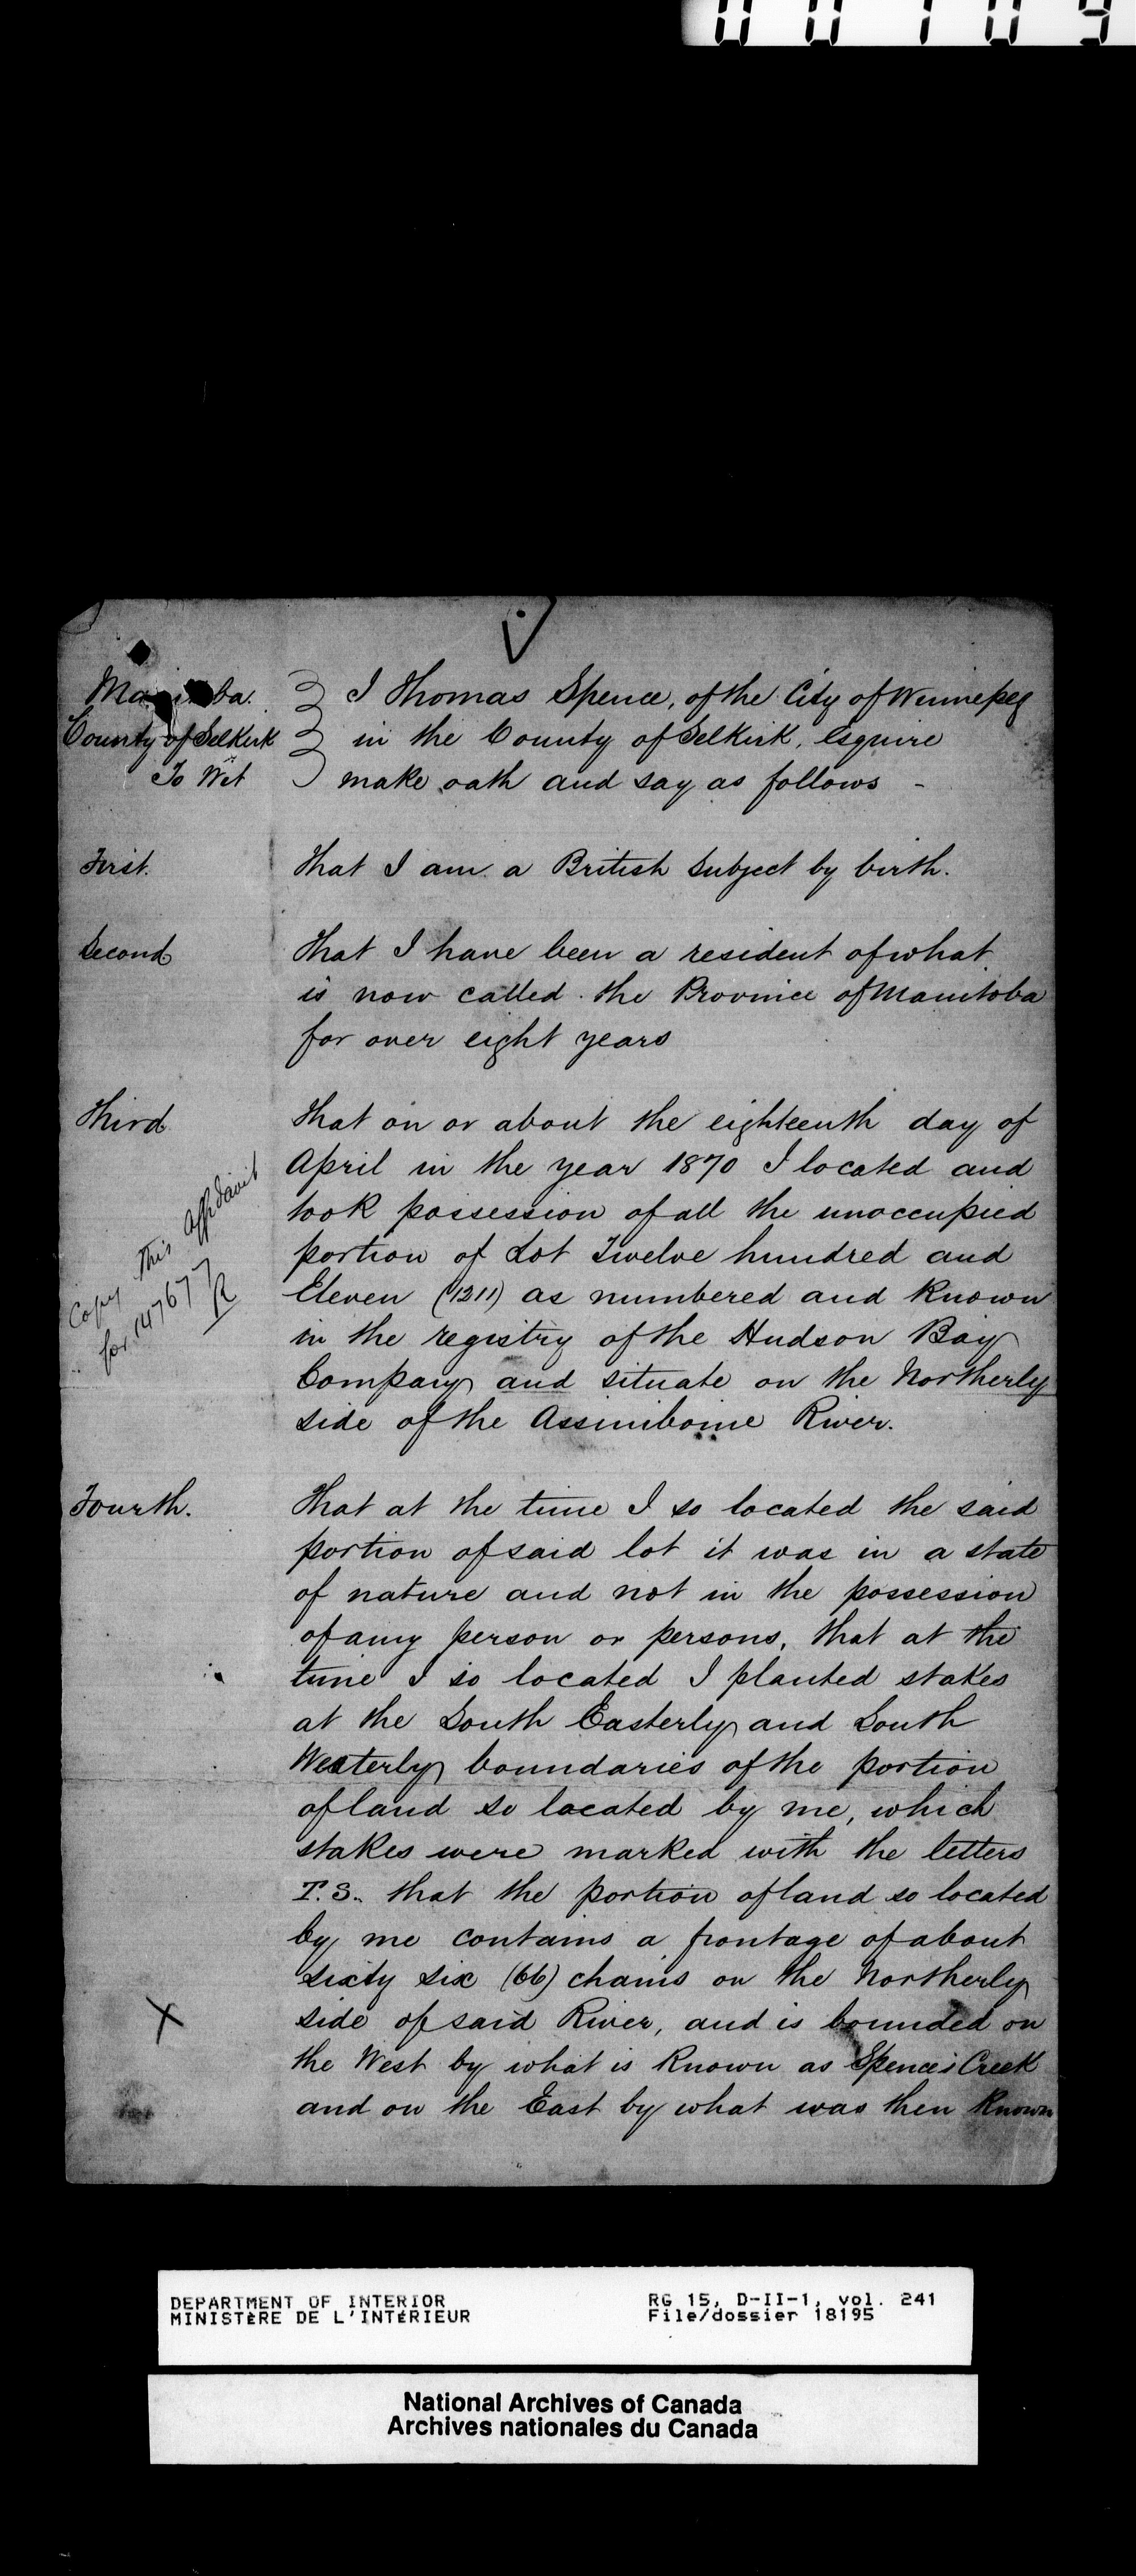 00109
Manitoba.
County of Selkirk
To Wit
I Thomas Spence, of the City of Winnepeg
in the County of Selkirk, Esquire
make oath and say as follows -
First.
That I am a British Subject by birth.
Second
That I have been a resident of what
is now called the Province of Manitoba
for over eight years
Third
That on or about the eighteenth day of
April in the year 1870 I located and
took possession of all the unoccupied
portion of Lot Twelve hundred and
Eleven (1211) as numbered and Known
in the registry of the Hudson Bay
Company and situate on the Northerly
side of the Assiniboine River.
Copy This Affidavit
for 147677
R
Fourth.
That at the time I so located the said
portion of said lot it was in a state
of nature and not in the possession
of any person or persons, that at the
time I so located I planted stakes
at the South Easterly and South
Westerly boundaries of the portion
of land so located by me, which
stakes were marked with the letters
T.S. that the portion of land so located
by me contains a frontage of about
sixty six (66) chains on the Northerly
side of said River, and is bounded on
the West by what is Known as Spence's Creek
and on the East by what was then Known
X
DEPARTMENT OF INTERIOR
MINISTÈRE DE L'INTÉRIEUR
RG 15, D-II-1, vol. 241
File/dossier 18195
National Archives of Canada
Archives nationales du Canada